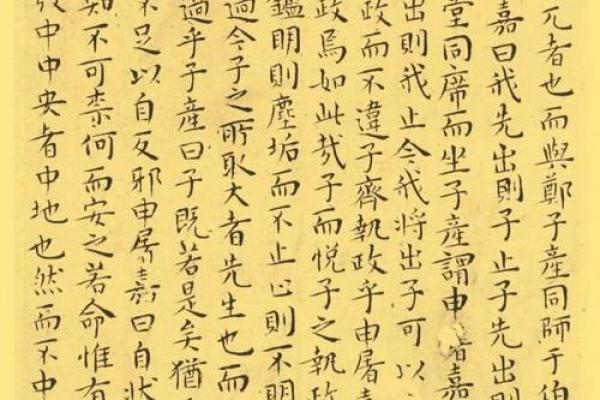 兀者也而與鄭子產同師于伯
嘉曰我先出則子止子先出則
堂同席而坐子產謂申屠嘉
出則我止今我將出子可以
政而不違子齊執政乎申屠嘉
政焉如此哉子而悅子之執政
鑑明則塵垢而不止止則不明
過今子之所取大者先生也而
過乎子產曰子既若是矣猶
不足以自反邪申屠嘉曰自狀
知不可柰何而安之若命惟有
中中央者中地也然而不中